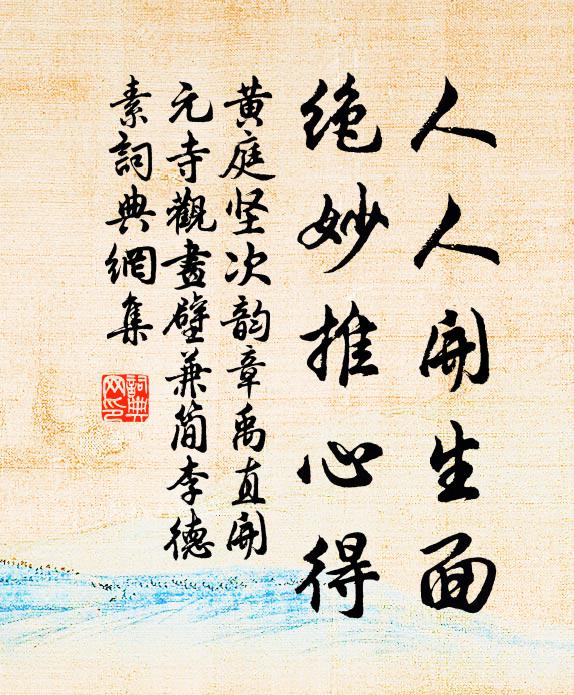 人人開生面
絶妙推心得
黄庭坚次韵章禹直開
元寺觀畫壁兼简李德
素詞典網集
詞典
网印